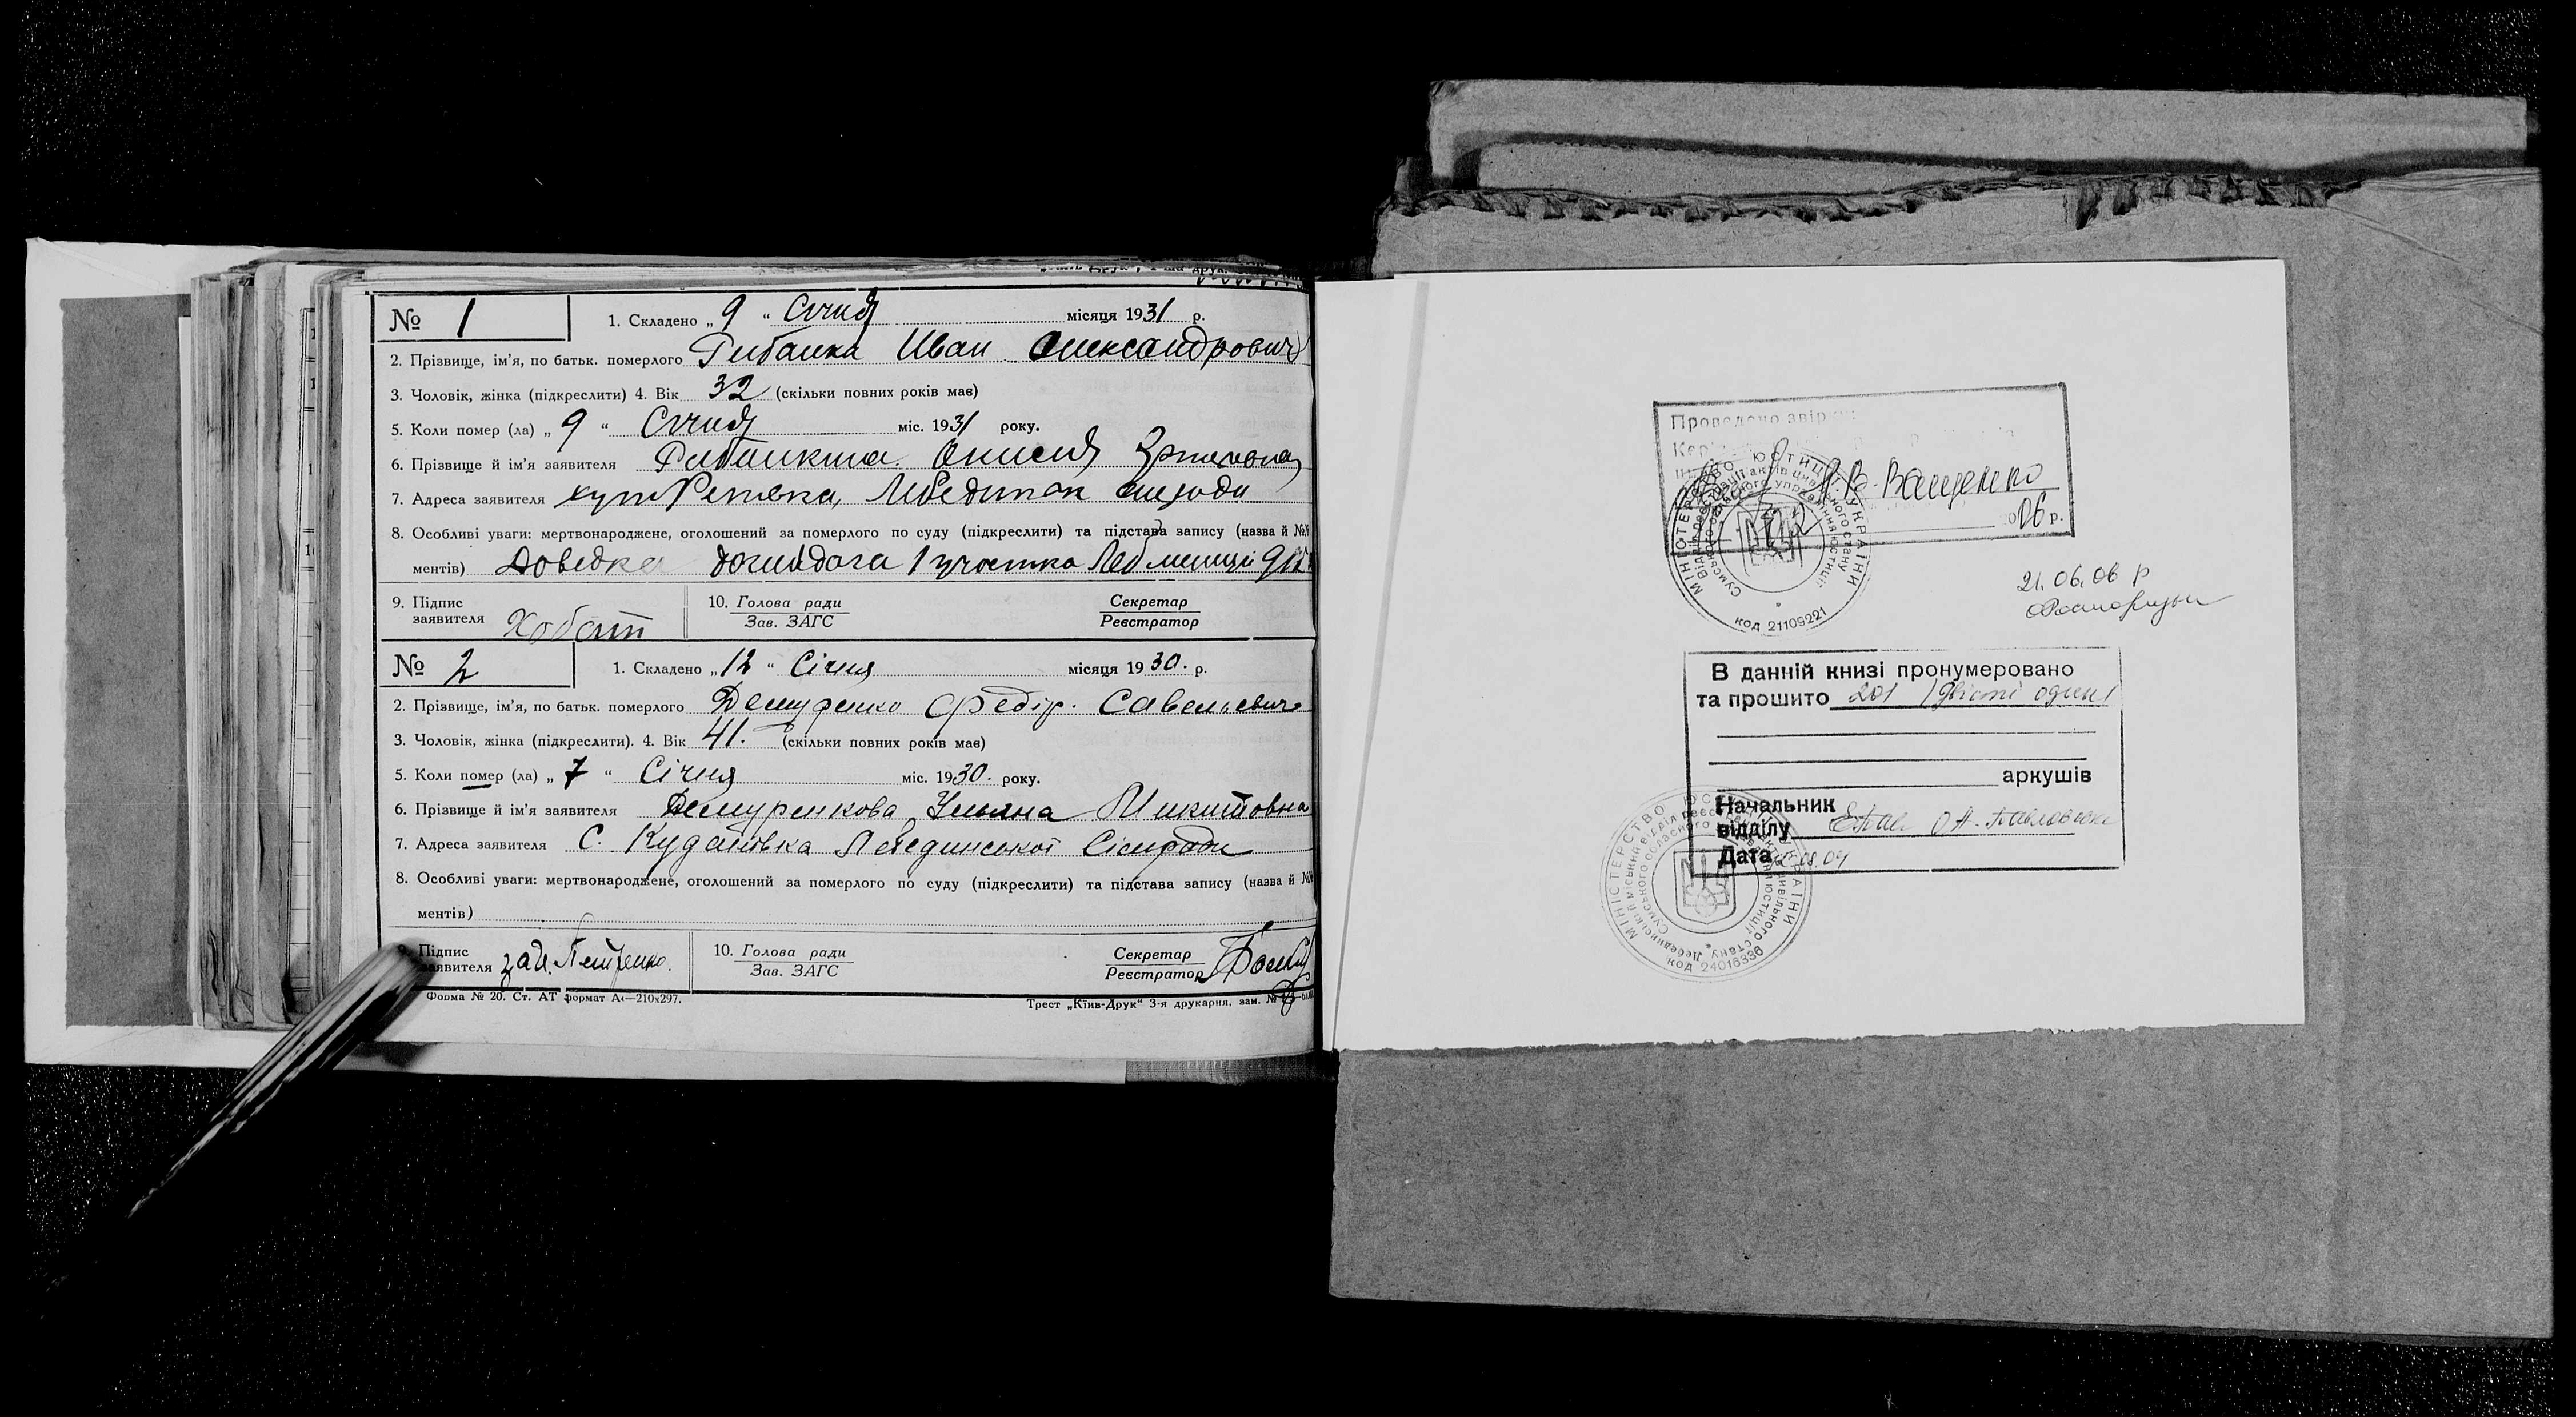 № 1 1. Складено „ 9 “ Січня місяця 1931 р.
2. Прізвище, ім'я, по батьк. померлого Рибалка Иван Олександрович
3. Чоловік, жінка (підкреслити) 4. Вік 32 (скільки повних років має)
5. Коли помер (ла) „ 9 “ Січня міс. 1931 року.
6. Прізвище й ім'я заявителя
7. Адреса заявителя Лебединської
8. Особливі уваги: мертвонароджене, оголошений за померлого по суду (підкреслити) та підстава запису (назва й №№
ментів) Довідка 1 участка Леб
9. Підпис заявителя 10. Голова ради Зав. ЗАГС Секретар Реєстратор
№ 2 1. Складено „ 12 “ Січня місяця 1930. р.
2. Прізвище, ім'я, по батьк. померлого Демуренко Федір. Савельевич
3. Чоловік, жінка (підкреслити). 4. Вік 41. (скільки повних років має)
5. Коли помер (ла) „ 7 “ Січня міс. 1930. року.
6. Прізвище й ім'я заявителя Демуренкова Ульяна Микитовна
7. Адреса заявителя С. Кудаївка Лебединської Сільради
8. Особливі уваги: мертвонароджене, оголошений за померлого по суду (підкреслити) та підстава запису (назва й №№
ментів)
9. Підпис заявителя за И. Петренко. 10. Голова ради Зав. ЗАГС Секретар Реєстратор
Форма № 20. Ст. АТ формат А4—210х297. Трест „Київ-Друк“ 3-я друкарня, зам. №
Проведено звірку
В. Ващенко
06 р.
МІНІСТЕРСТВО ЮСТИЦІЇ УКРАЇНИ
код 21109221
21.06.06 р
В данній книзі пронумеровано
та прошито 201 /двісті один/
аркушів
Начальник
відділу
Дата 08.04
МІНІСТЕРСТВО ЮСТИЦІЇ УКРАЇНИ
код 24016336